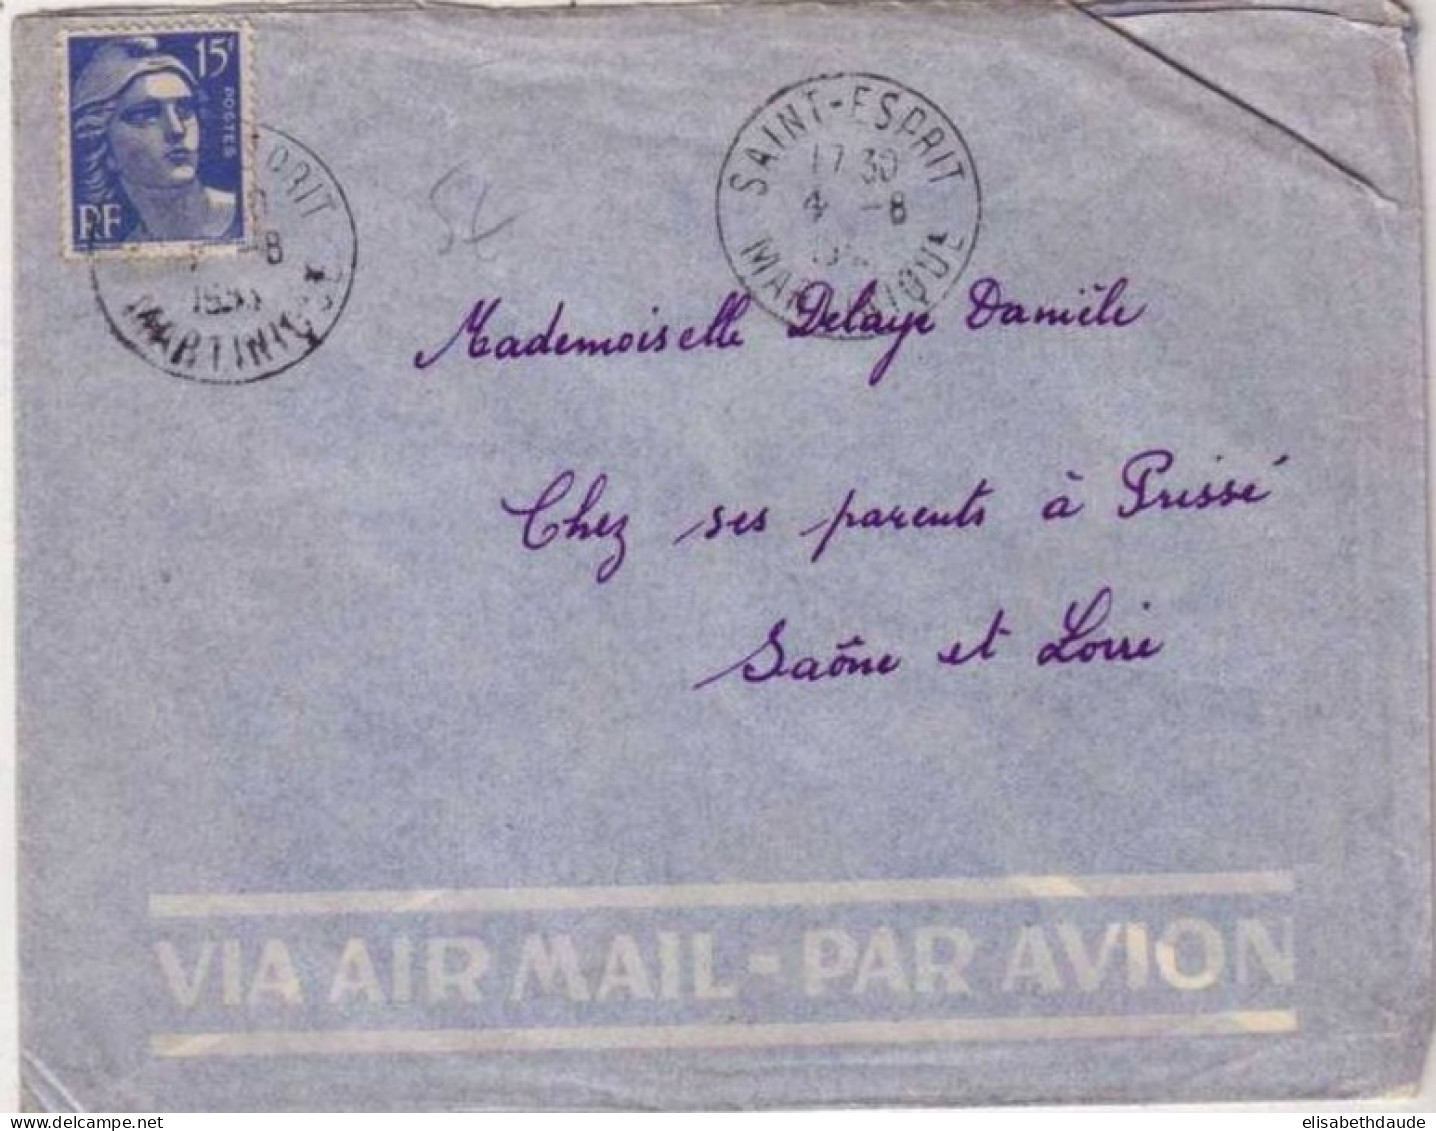 15F
POSTES
RF
-8
MARTINIQUE
SAINT-ESPRIT
17 30
4 -8
MARTINIQUE
Mademoiselle Delaye Danièle
Chez ses parents à Prissé
Saône et Loire
VIA AIR MAIL - PAR AVION
elisabethdaude